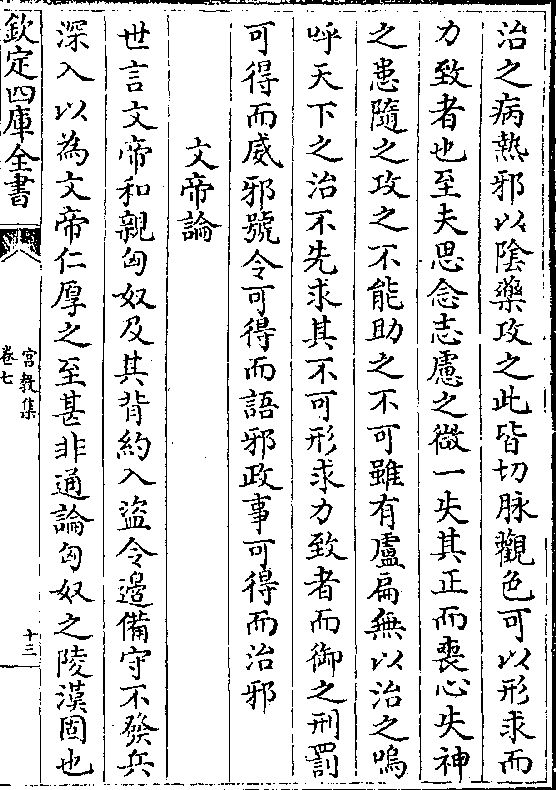 治之病熱邪以陰藥攻之此皆切脉觀色可以形求而
力致者也至夫思念志慮之微一失其正而喪心失神
之患隨之攻之不能助之不可雖有盧扁無以治之嗚
呼天下之治不先求其不可形求力致者而御之刑罰
可得而威邪號令可得而語邪政事可得而治邪
文帝論
世言文帝和親匈奴及其背約入盜令邊備守不發兵
深入以為文帝仁厚之至甚非通論匈奴之陵漢固也
欽定四庫全書
宮教集
卷七
十三